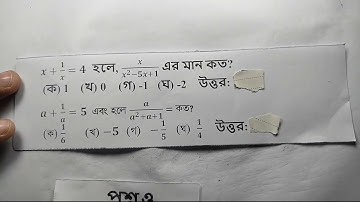 x + 1/x = 4 হলে, x/(x²−5x+1) এর মান কত?
(ক) 1 (খ) 0 (গ) -1 (ঘ) -2 উত্তর:
a + 1/a = 5 এবং হলে a/(a²+a+1) = কত?
(ক) 1/6 (খ) −5 (গ) −1/5 (ঘ) 1/4 উত্তর: